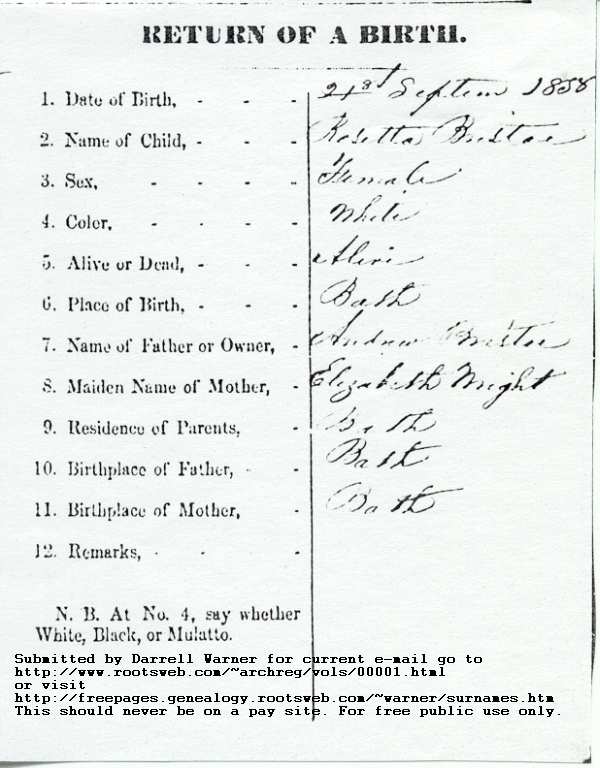 RETURN OF A BIRTH.
1. Date of Birth, - - - 21st Septem 1858
2. Name of Child, - - - Rosetta Bristoe
3. Sex, - - - - Female
4. Color, - - - - White
5. Alive or Dead, - - - Alive
6. Place of Birth, - - - Bath
7. Name of Father or Owner, - Andrew Bristoe
8. Maiden Name of Mother, - Elizabeth Wright
9. Residence of Parents, - Bath
10. Birthplace of Father, - - Bath
11. Birthplace of Mother, - Bath
12. Remarks, - - - -
N. B. At No. 4, say whether
White, Black, or Mulatto.
Submitted by Darrell Warner for current e-mail go to
http://www.rootsweb.com/~archreg/vols/00001.html
or visit
http://freepages.genealogy.rootsweb.com/~warner/surnames.htm
This should never be on a pay site. For free public use only.